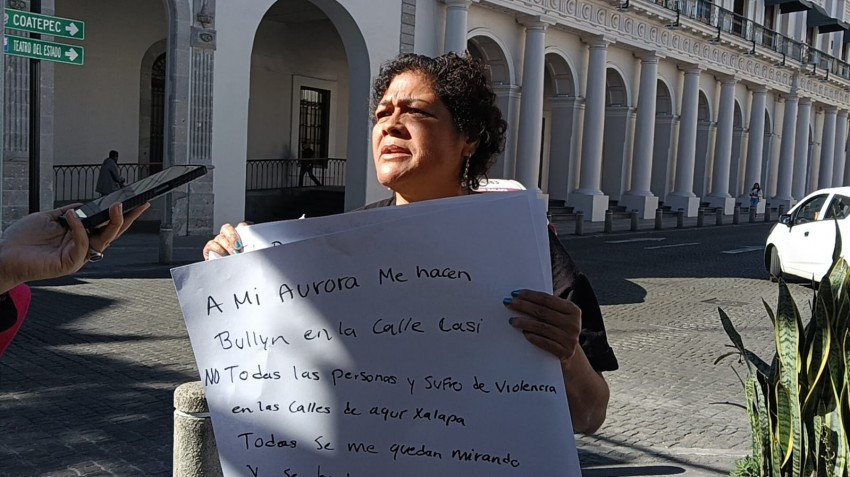 COATEPEC
TEATRO DEL ESTADO
A Mi AurorA Me hacen
Bullyn en la Calle Casi
NO Todas las personas y sufro de Violencia
en las Calles de aquí Xalapa
Todas se me quedan mirando
Y se